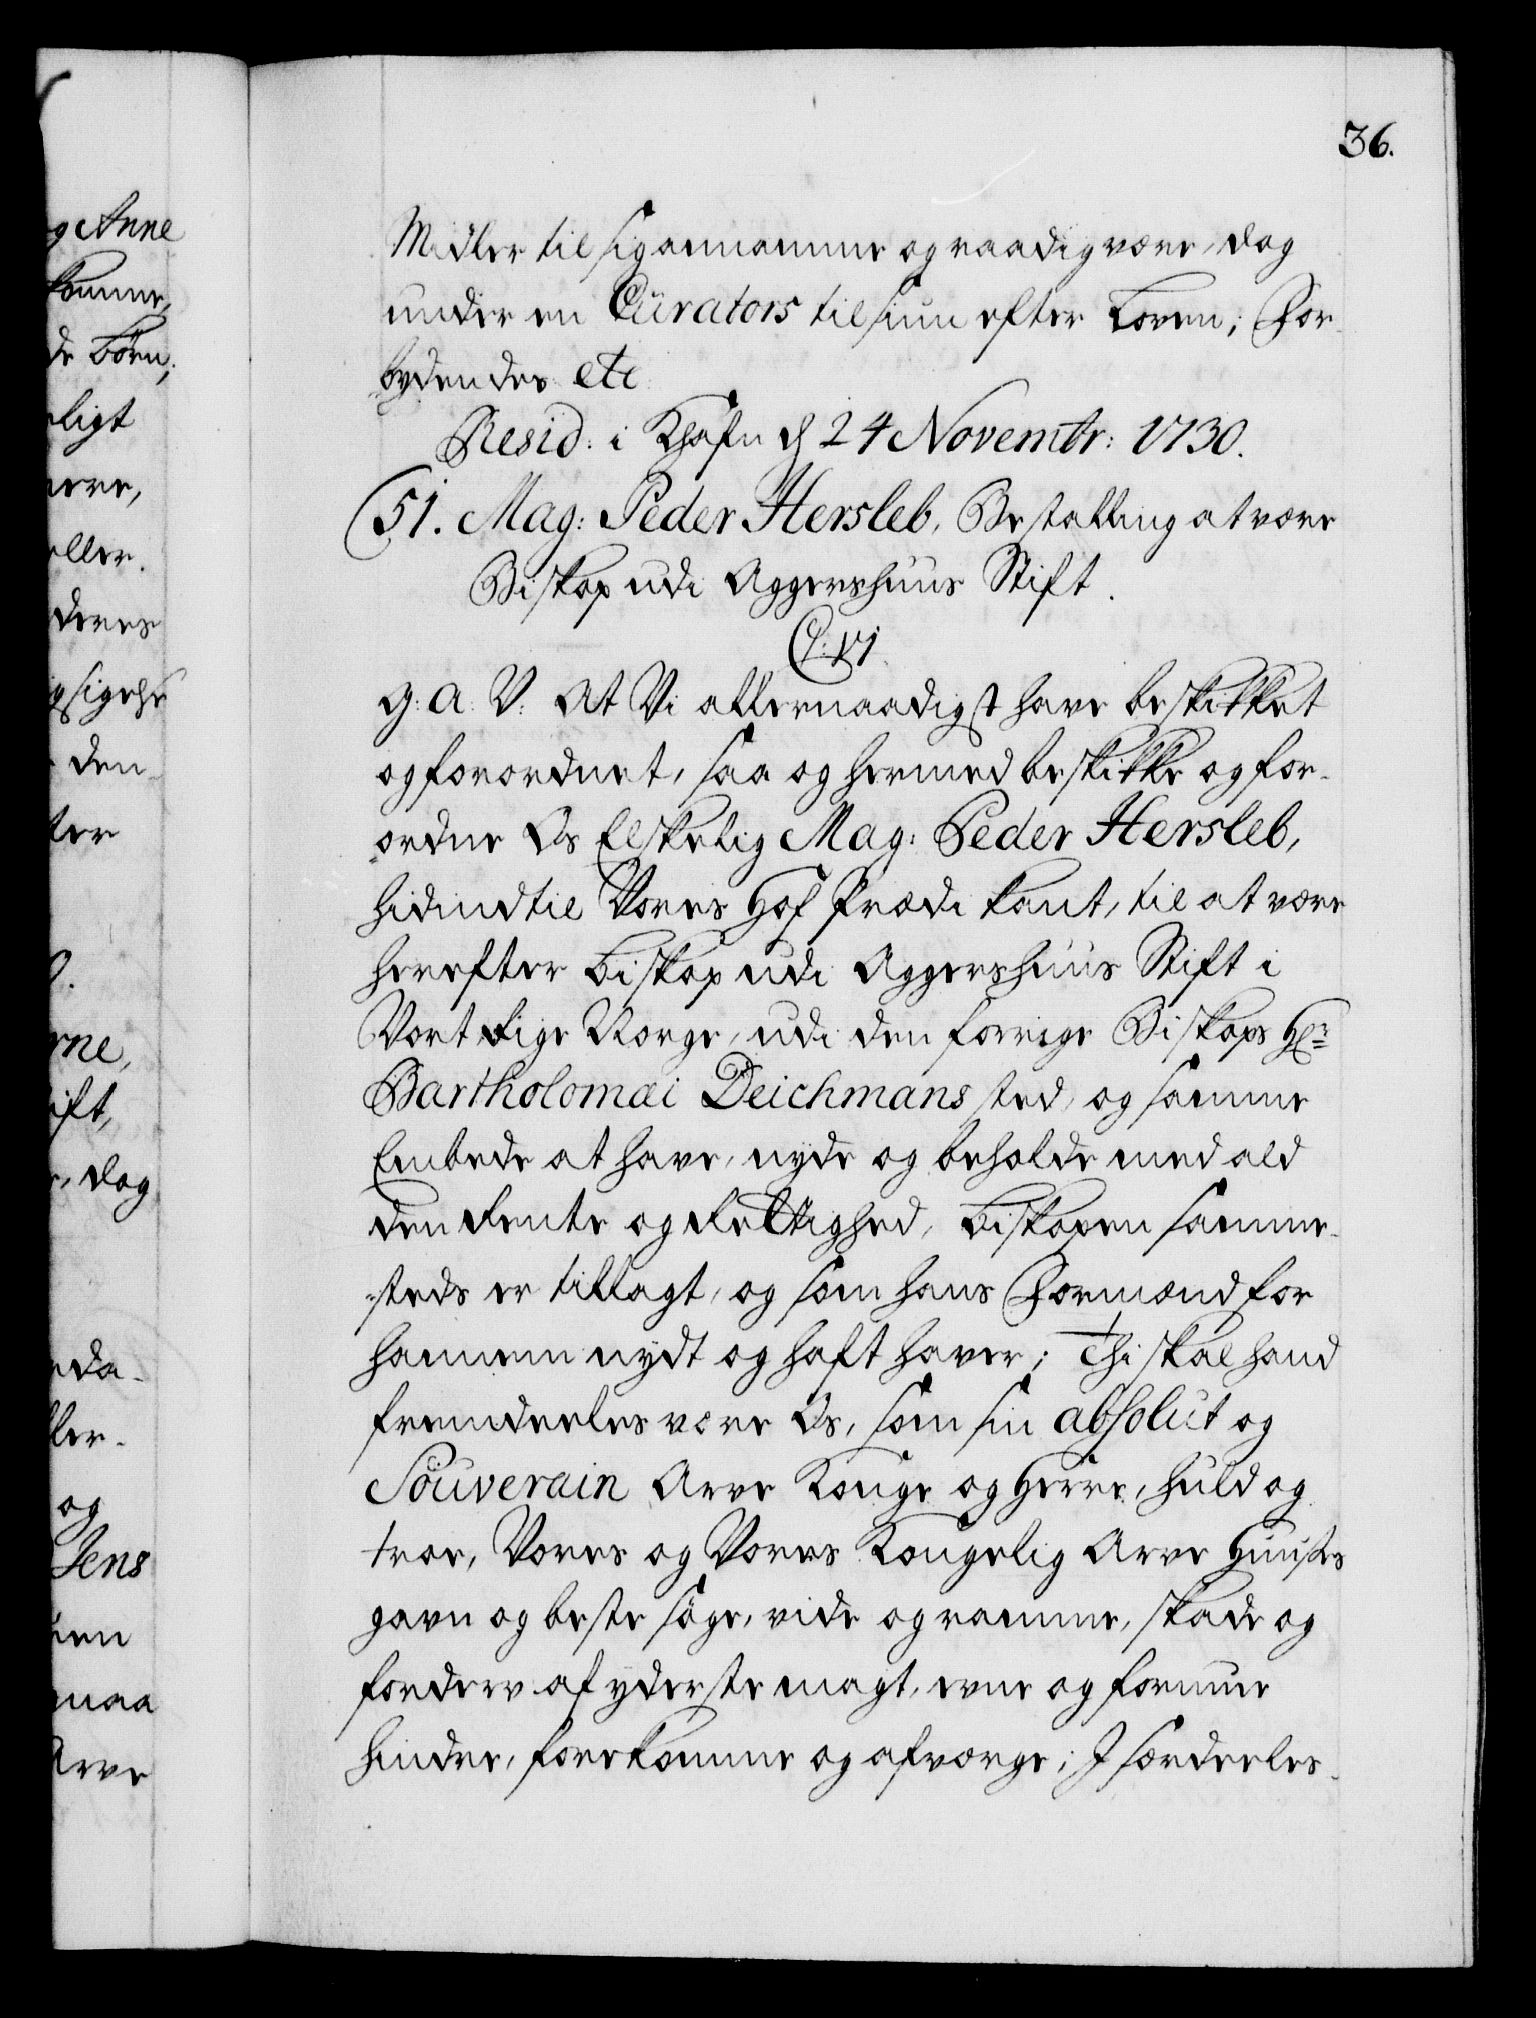 36.
Midler til sig annamme og raadig være, dog
under en Curators tilsiun efter Loven; For-
bydendes etc
Resid: i Khafn d 24 Novembr: 1730.
51. Mag: Peder Hersleb, Bestalling at være
Biskop udi Aggershuus Stift.
C: VI.
G: A: V: At Vi allernaadigst have beskikket
og forordnet, saa og hermed beskikke og for-
ordne Os Elskelig Mag: Peder Hersleb,
hidindtil Vores Hof Prædikant, til at være
herefter Biskop udi Aggershuus Stift i
Vort Rige Norge, udi den forrige Biskops Hr:
Bartholomæi Deichmans sted, og samme
Embede at have, nyde og beholde med ald
den Rente og Rettighed, Biskopen samme-
steds er tillagt, og som hans Formænd for
hannem nydt og haft haver; Thi skal hand
fremdeeles være Os, som sin absolut og
Souverain Arve Konge og Herre, huld og
troe, Vores og Vores Kongelig Arve Huuses
gavn og beste søge, vide og ramme, skade og
forderv af yderste magt, evne og formue
hindre, forekomme og afværge; I særdeeles-
g Anne
komme,
de Børn;
ligt
eller.
deres
den
ter
rne,
ift,
dog
og
Jens
maa
Arve